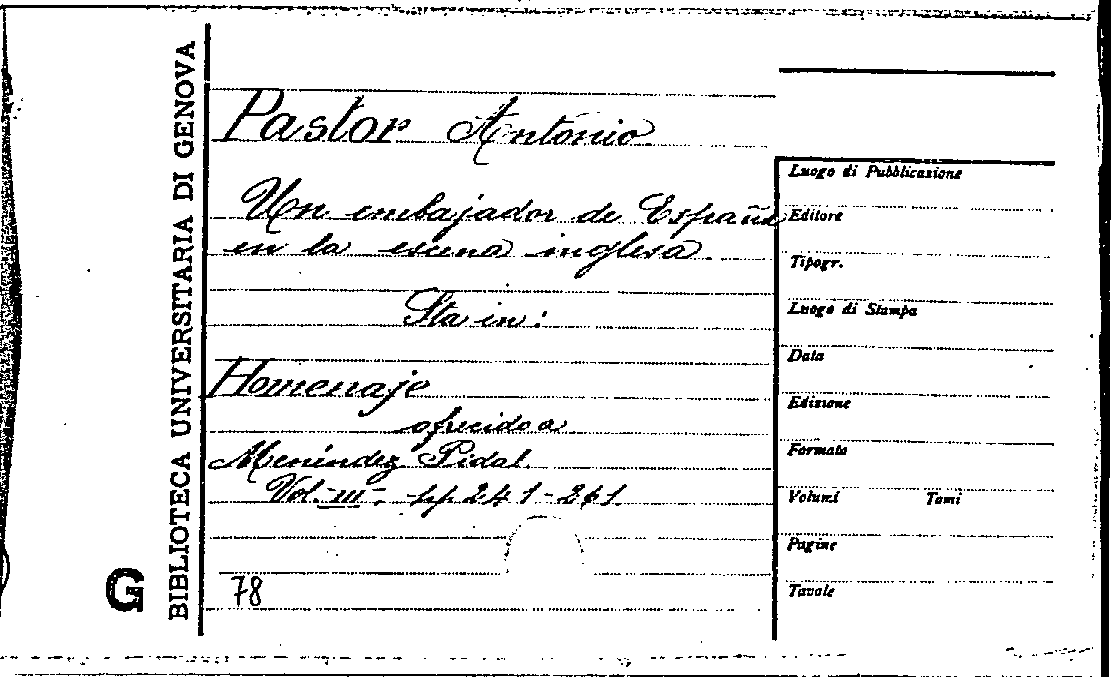 BIBLIOTECA UNIVERSITARIA DI GENOVA
G
Pastor Antonio
Un embajador de España
en la escena inglesa.
Sta in:
Homenaje
ofrecido a
Menéndez Pidal
Vol. III, pp 241-261.
78
Luogo di Pubblicazione
Editore
Tipogr.
Luogo di Stampa
Data
Edizione
Formato
Volumi Tomi
Pagine
Tavole